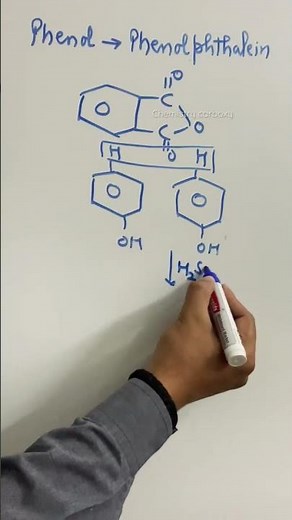 Phenol → Phenolphthalein
O
C
Chemistry.corbaug
O
C
H O H
OH
OH
H₂S